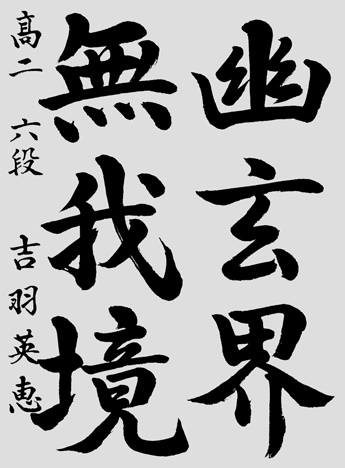 幽玄界
無我境
高二 六段 吉羽英恵